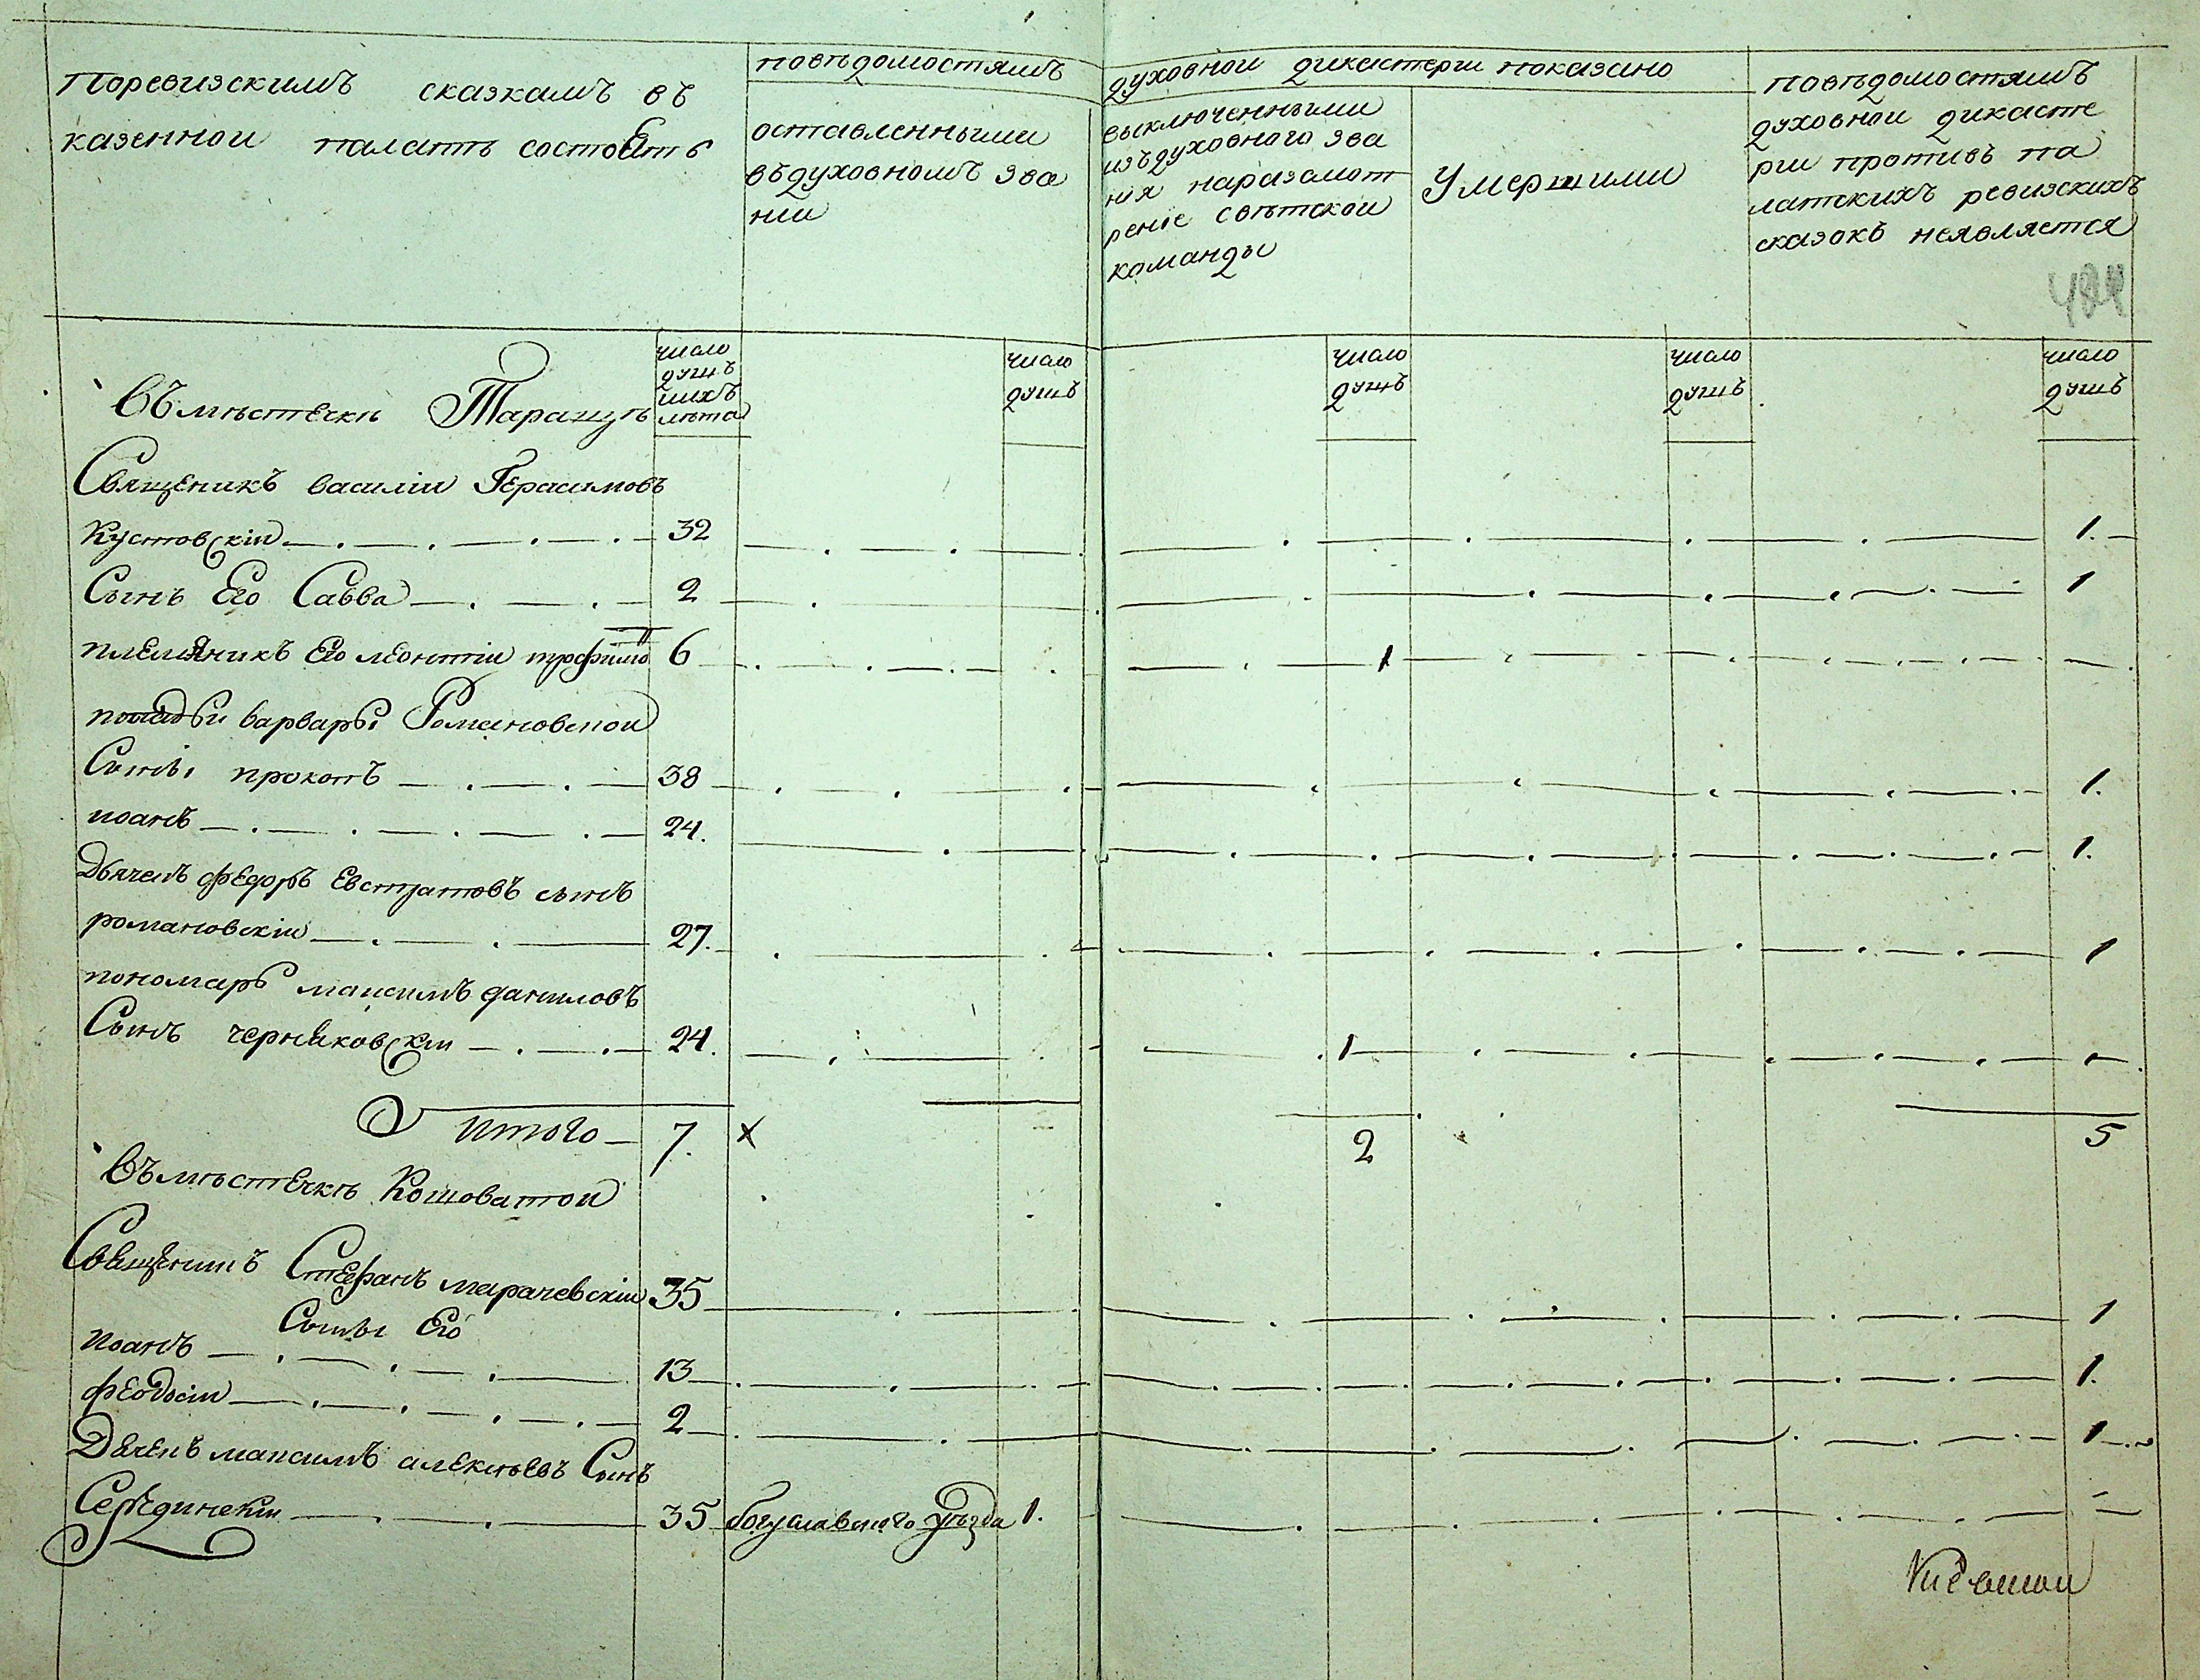 Поревизскимъ сказкамъ въ
казенной палатѣ состоитъ
повѣдомостямъ
духовной дикастерии показано
оставленными
въдуховномъ зва
нии
выключенными
изъдуховного зва
ния наразсмот
рение свѣтской
команды
Умершими
повѣдомостямъ
духовной дикасте
рии противъ па
латскихъ ревизскихъ
сказокъ неявляется
484
число
душъ
ихъ
лѣта
число
душъ
число
душъ
число
душъ
число
душъ
Въмѣстечкѣ Таращѣ
Священикъ василіи Герасимовъ
Кустовскіи 32 1.
Сынъ Его Савва 2 1
племяникъ Его леонтіи трофимо 6 1
попадьи варвары Романовской
Сыны прокопъ 38 1.
иоанъ 24. 1.
Дьячекъ федоръ Евстратовъ сынъ
романовскіи 27. 1
пономарь максимъ даниловъ
Сынъ черняковскіи 24. 1
Итого 7. х 2 5
Въмѣстечкѣ Кошоватой
Священикъ Стефанъ марачевскіи 35 1
Сыны Его
иоанъ 13 1.
феодосіи 2 1
Дячекъ максимъ алексѣевъ Сынъ
Серединскіи 35 богуславского уѣзда 1.